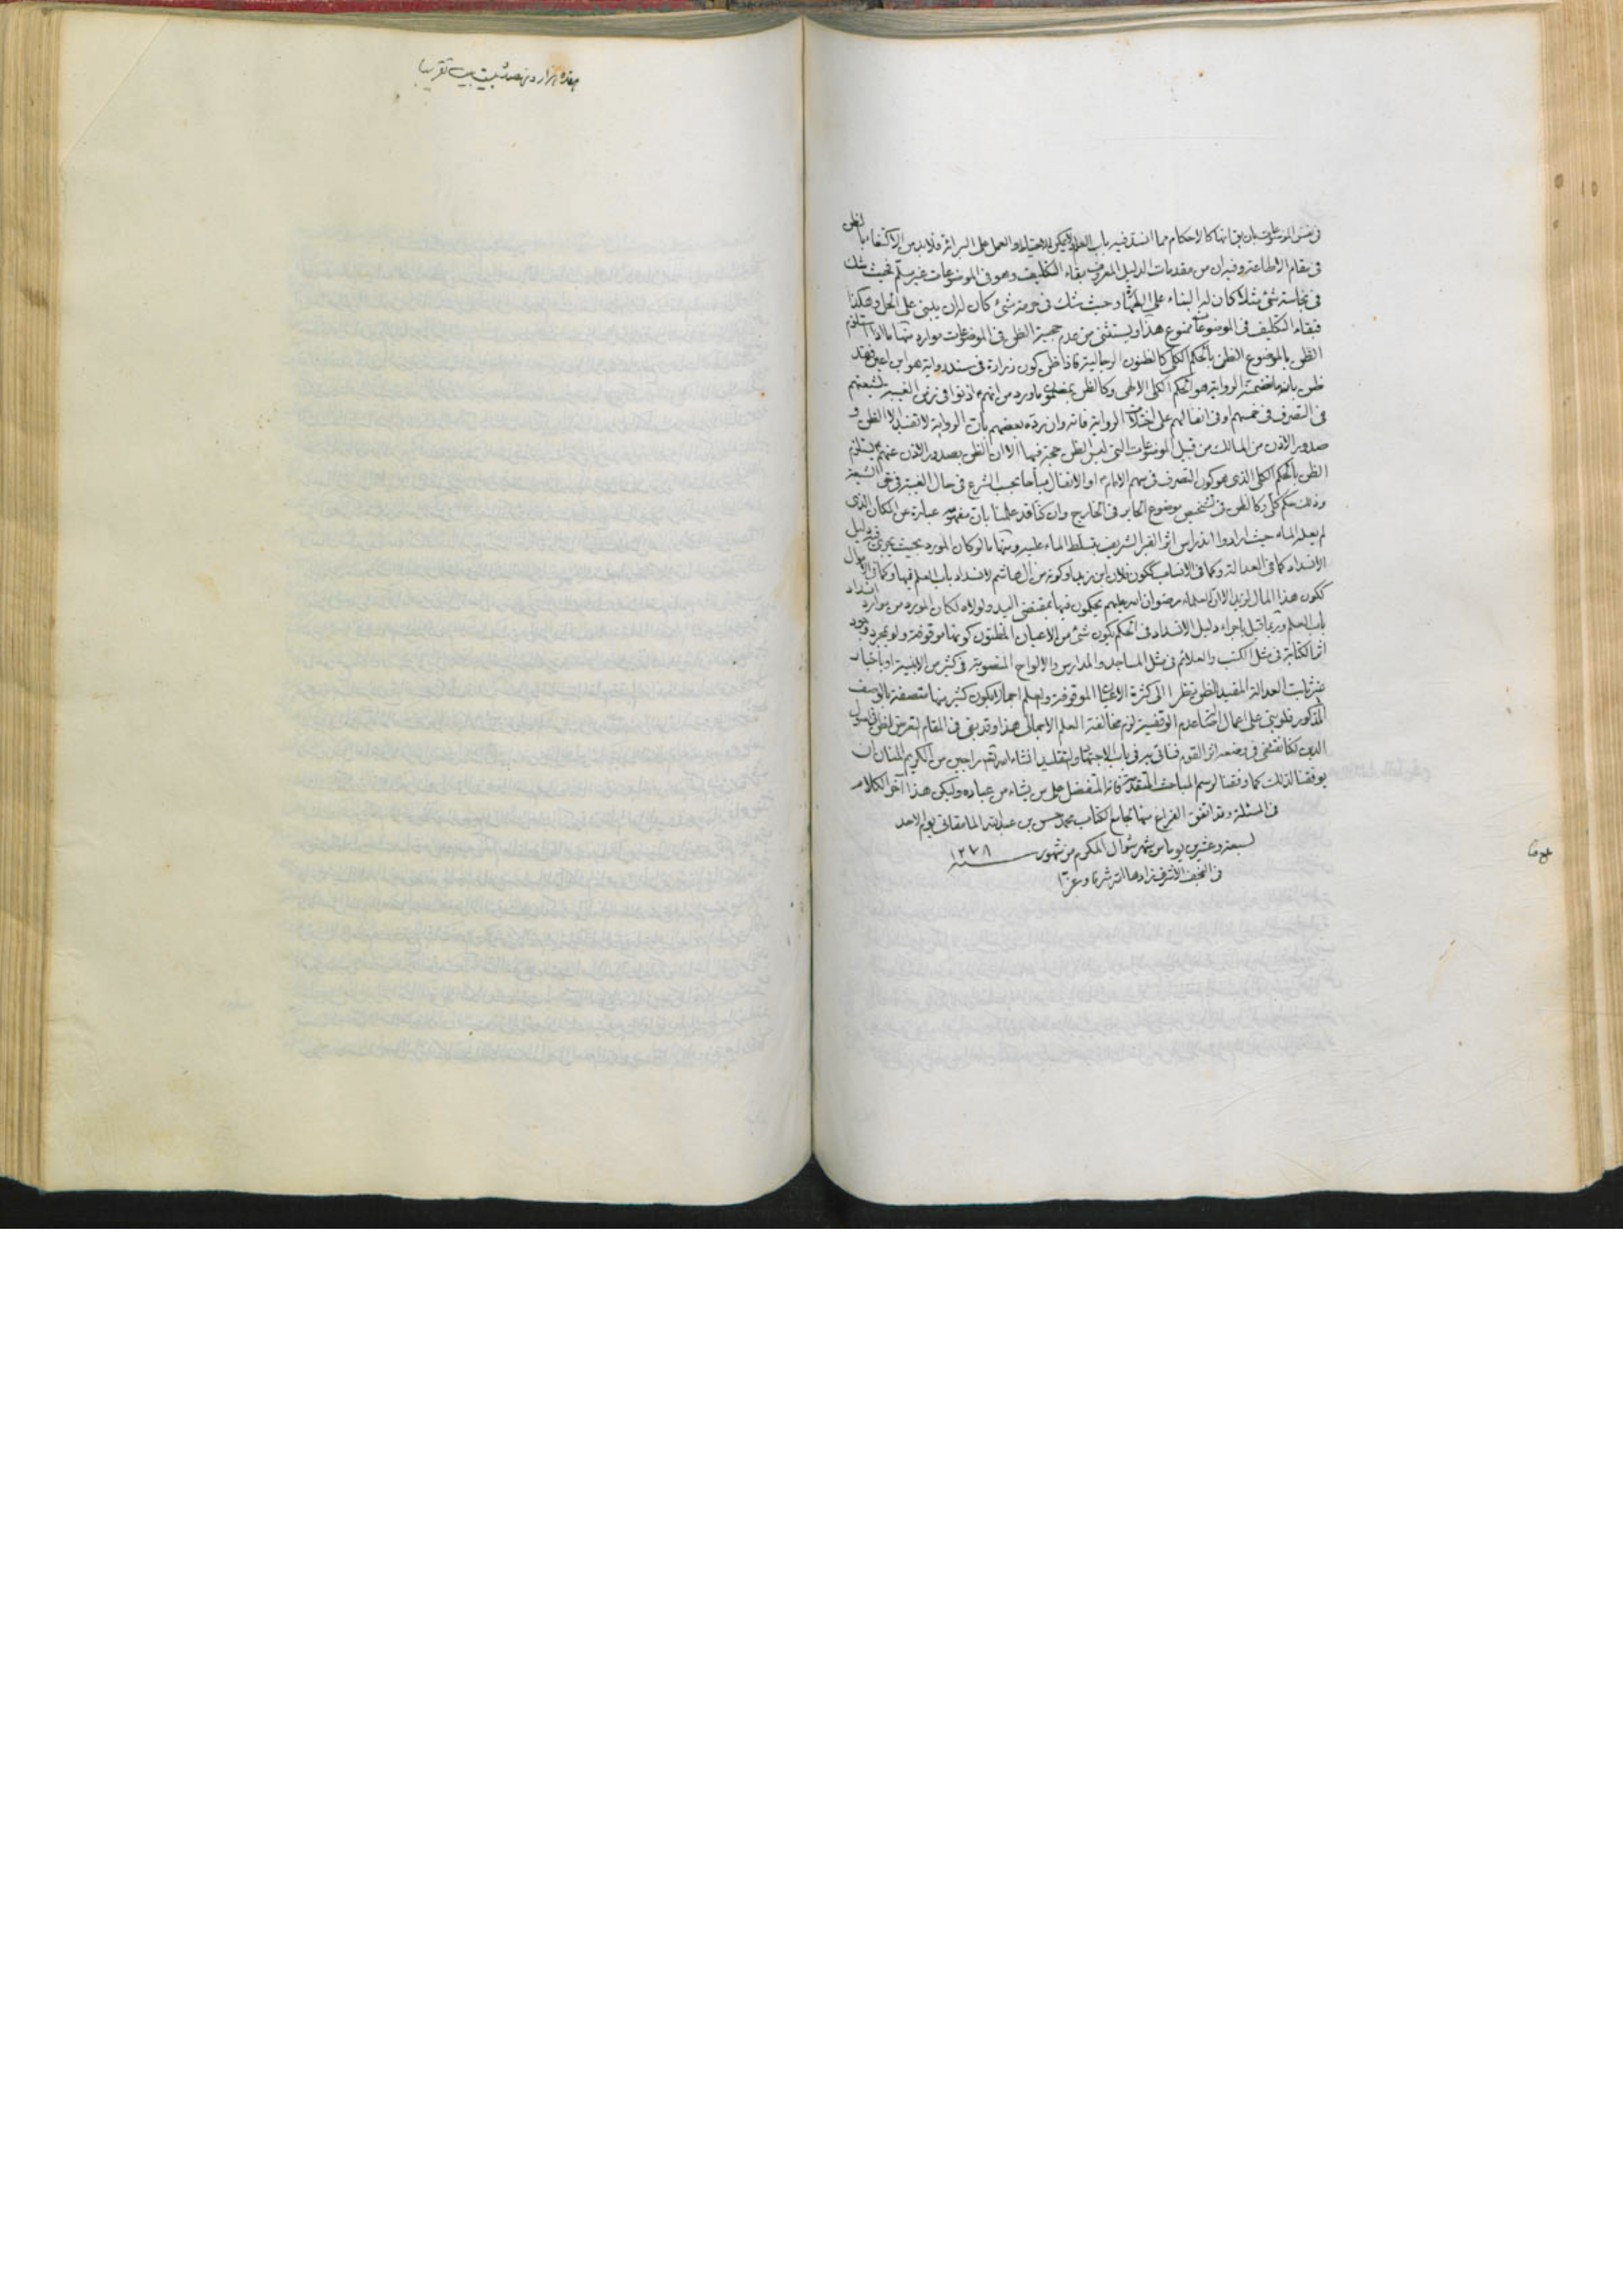 في نفس الموضوعات بان يقال انها كالاحكام مما انسد فيه باب العلم ولا يمكن الاحتياط والعمل على البرائة فلا بد من الاكتفاء بالظن
في مقام الاطاعة وفيه ان من مقدمات الدليل المعروف بقاء التكليف وهو في الموضوعات غير مسلّم فحيث شك
في نجاسة شئ مثلا كان له البناء على الطهارة وحيث شك في حرمة شئ كان له ان يبنى على الحل وهكذا
فبقاء التكليف في الموضوعات ممنوع هذا ويستثنى من عدم حجية الظن في الموضوعات موارد منها ما اذا استلزم
الظن بالموضوع الظن بالحكم الكلى كالظنون الرجالية فاذا ظن كون زرارة في سند رواية هو ابن اعين فقد
ظن بان ما تضمنته الرواية هو الحكم الكلى الالهى وكالظن بمضمون ما ورد من انهم ع اذنوا في زمن الغيبة لشيعتهم
في التصرف في خمسهم او في انفالهم على اختلاف الرواية فانه وان ردّه بعضهم بان الرواية لا تفيد الا الظن و
صدور الاذن من المالك من قبيل الموضوعات التى ليس الظن حجة فيها الا ان الظن بصدور الاذن عنهم ع يستلزم
الظن بالحكم الكلى الذى هو كون التصرف في سهم الامام ع او الانفال مباحا بحسب الشرع في حال الغيبة في حق الشيعة
وذلك حكم كلى وكالظن في تشخيص موضوع الحاير في الخارج وان كنا قد علمنا بان مفهومه عبارة عن المكان الذى
لم يعله الماء حيث ارادوا اندراس اثر القبر الشريف بتسلط الماء عليه ومنها ما لو كان المورد بحيث يجرى فيه دليل
الانسداد كما في العدالة وكما في الانساب ككون فلان ابن زيد او كونه من ال هاشم لانسداد باب العلم فيها وكما في الاموال
ككون هذا المال لزيد الا ان العلماء رضوان الله عليهم يحكمون فيها بمقتضى اليد ولولاه لكان المورد من موارد انسداد
باب العلم وربما قيل باجراء دليل الانسداد في الحكم بكون شئ من الاعيان المظنون كونها موقوفة ولو بمجرد وجود
اثر الكتابة في مثل الكتب والعلائم في مثل المساجد والمدارس والالواح المنصوبة في كثير من الابنية او باخبار
غير ثابت العدالة المفيد للظن نظرا الى كثرة الاعيان الموقوفة والعلم اجمالا بكون كثير منها متصفة بالوصف
المذكور فلو بنى على اعمال اصالة عدم الوقفية لزم مخالفة العلم الاجمالى هذا وقد بقى في المقام التعرض للظن في اصول
الدين لكنا نقتفى في وضعه اثر القوم فسنأتي به في باب الاجتهاد والتقليد انشاء الله تعالى راجين من الكريم المنان ان
يوفقنا لذلك كما وفقنا لرسم المباحث المتقدمة فانه المتفضل على من يشاء من عباده وليكن هذا آخر الكلام
في المسئلة وقد اتفق الفراغ منها لجامع الكتاب محمد حسن بن عبد الله المامقانى يوم الاحد
لسبعة وعشرين يوما من شهر شوال المكرم من شهور سنة ١٢٧٨
في النجف الاشرف زادها الله شرفا وعزّا
هزار و تقريبا